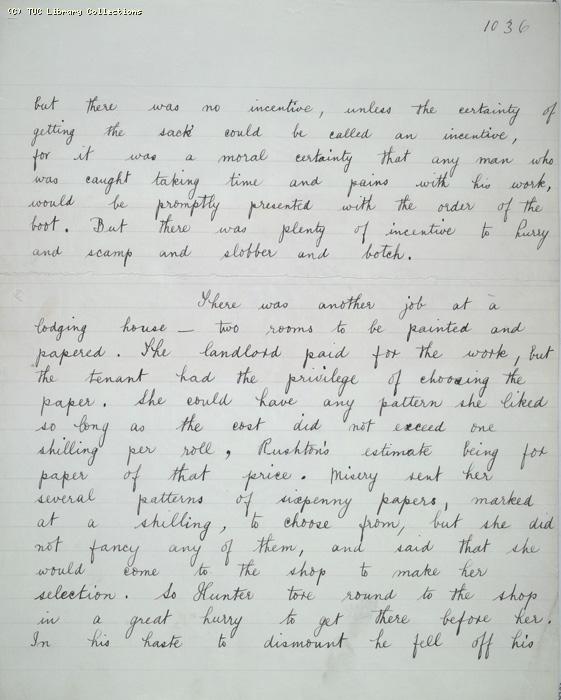 (C) TUC Library Collections
1036
but there was no incentive, unless the certainty of
getting the sack could be called an incentive,
for it was a moral certainty that any man who
was caught taking time and pains with his work,
would be promptly presented with the order of the
boot. But there was plenty of incentive to hurry
and scamp and slobber and botch.
There was another job at a
lodging house — two rooms to be painted and
papered. The landlord paid for the work, but
the tenant had the privilege of choosing the
paper. She could have any pattern she liked
so long as the cost did not exceed one
shilling per roll, Rushton's estimate being for
paper of that price. Misery sent her
several patterns of sixpenny papers, marked
at a shilling, to choose from, but she did
not fancy any of them, and said that she
would come to the shop to make her
selection. So Hunter tore round to the shop
in a great hurry to get there before her.
In his haste to dismount he fell off his